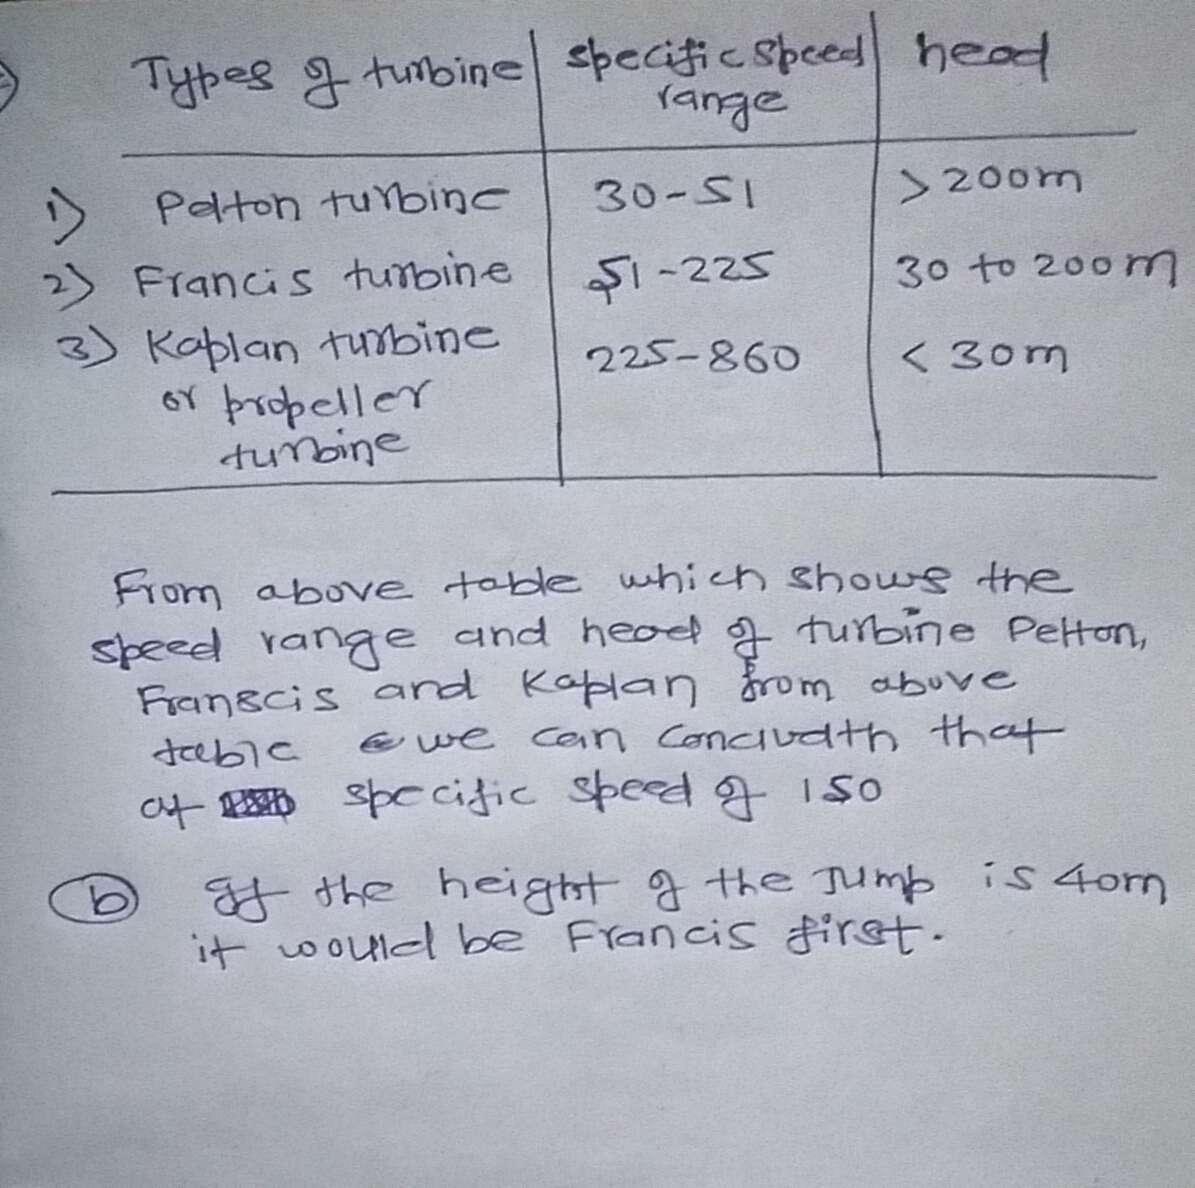 Types of turbine specific speed range head
1) Pelton turbine 30-51 >200m
2) Francis turbine 51-225 30 to 200m
3) Kaplan turbine 225-860 <30m
or propeller
turbine
From above table which shows the
speed range and head of turbine Pelton,
Franscis and Kaplan from above
table we can concludth that
at specific speed of 150
(b) If the height of the Jump is 40m
it would be Francis first.